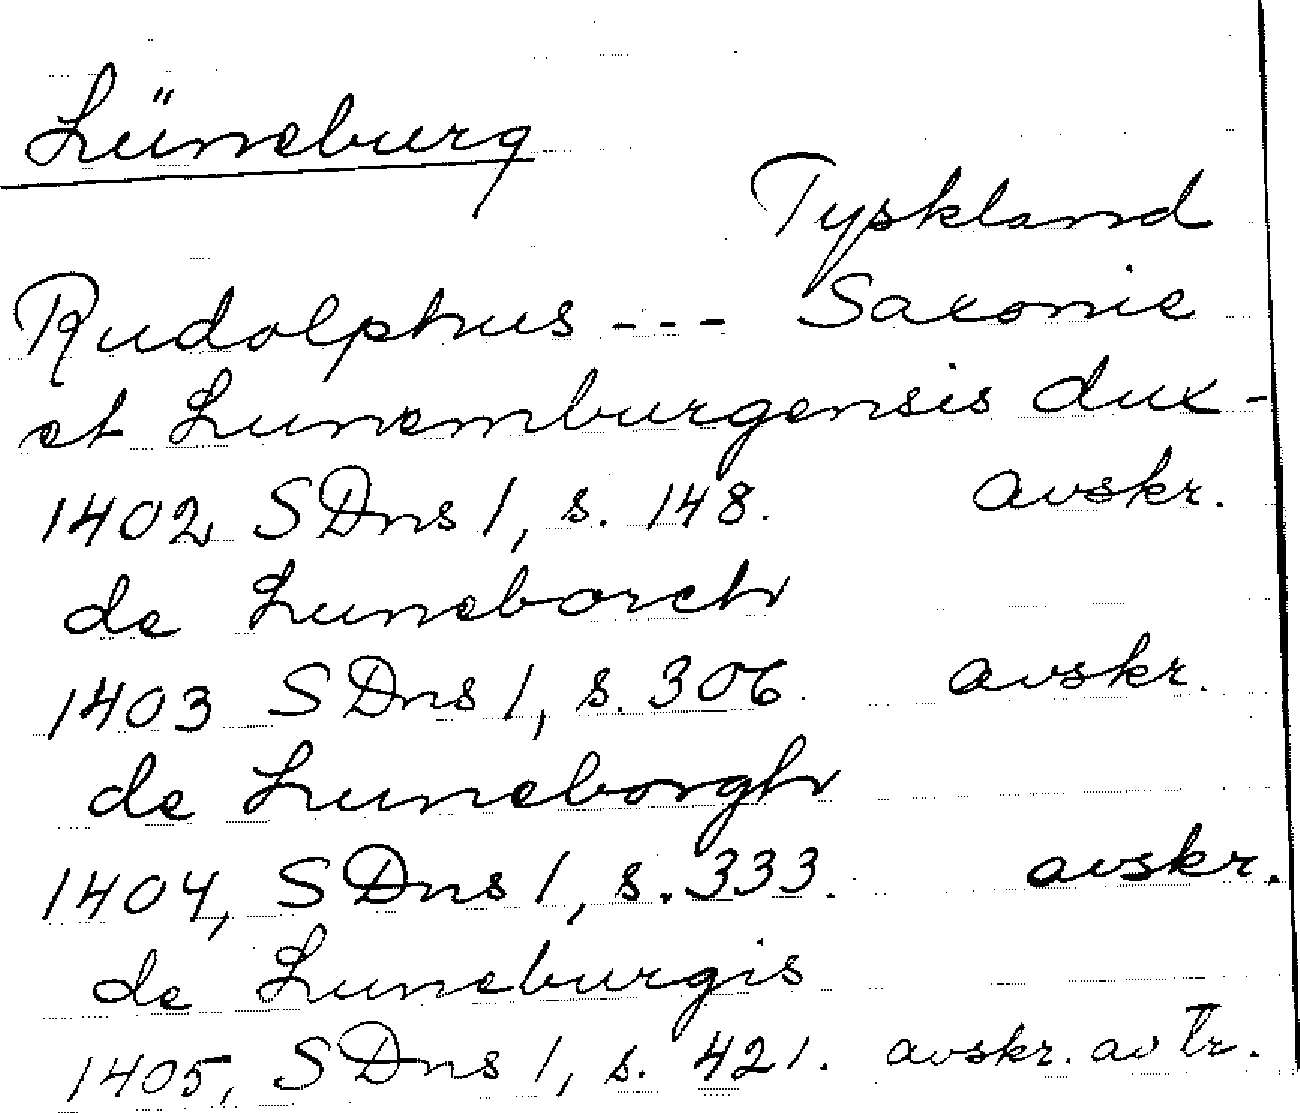 Lüneburg
Tyskland
Rudolphus --- Saxonie
et Lunemburgensis dux -
1402 SDns 1, s. 148. avskr.
de Luneborch
1403 SDns 1, s. 306. avskr.
de Luneborgh
1404, SDns 1, s. 333. avskr.
de Luneburgis
1405, SDns 1, s. 421. avskr. av Tr.